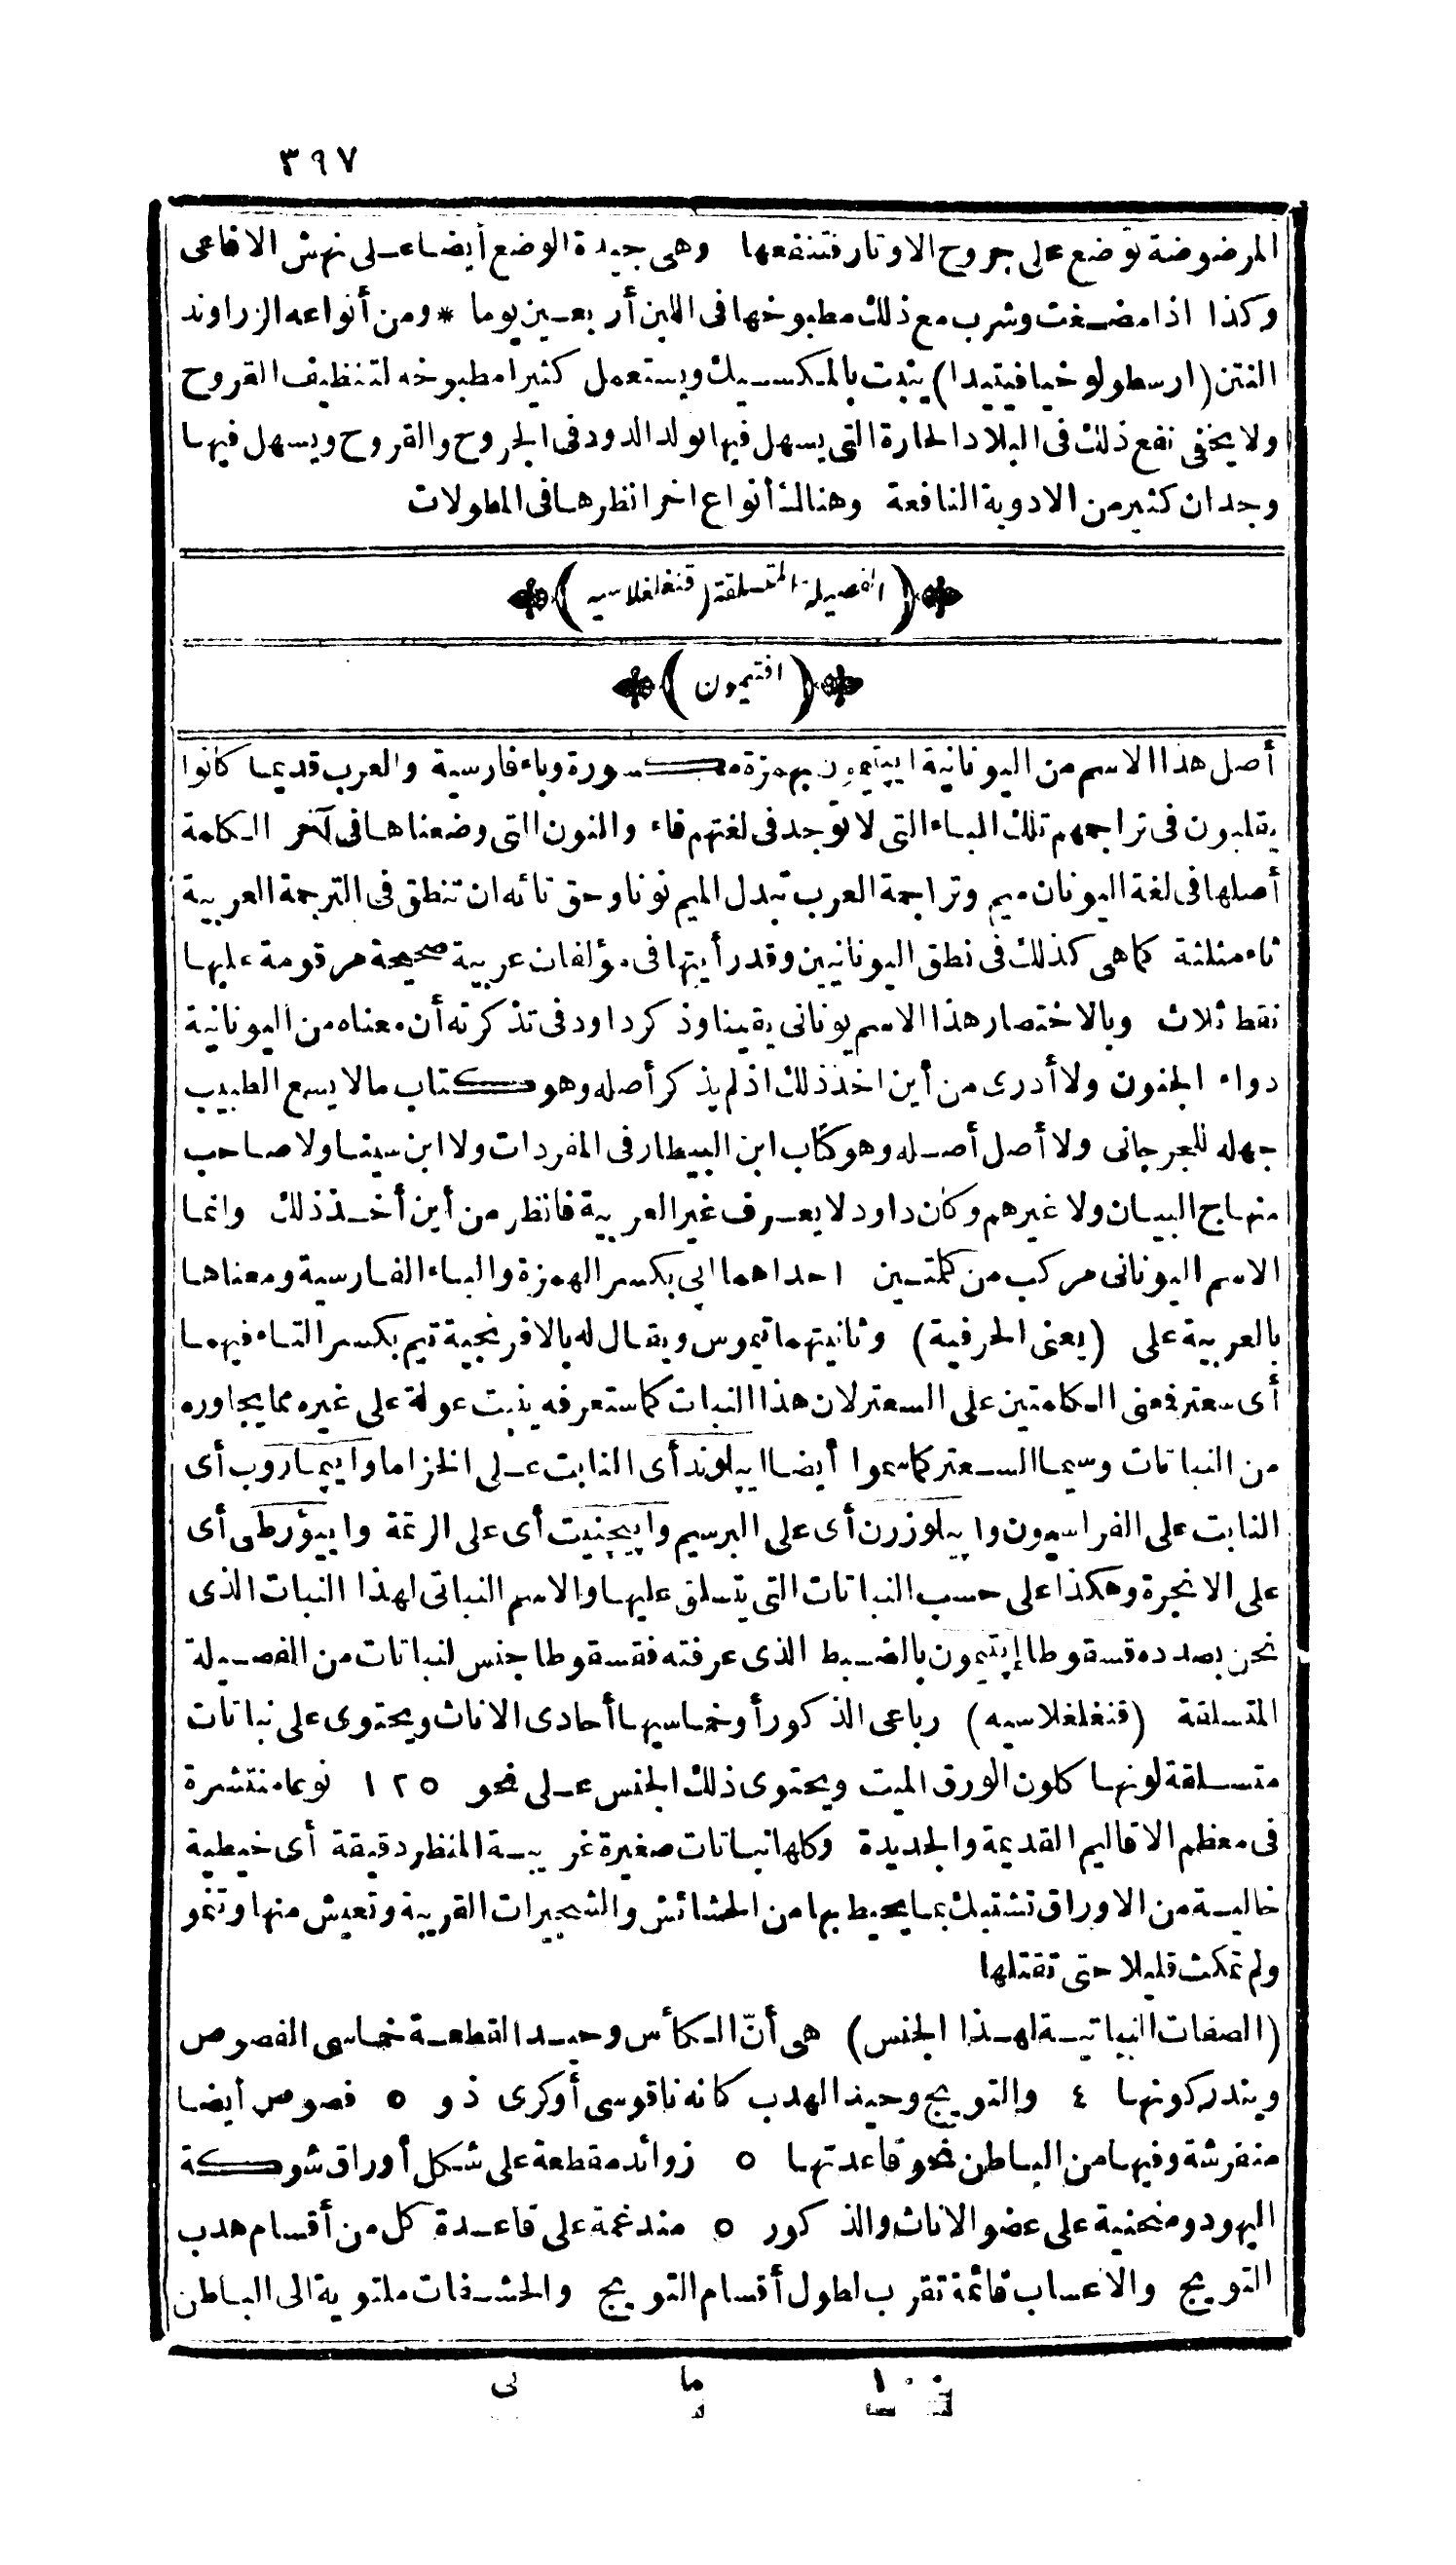 ٣٩٧
المرضوضة توضع على جروح الاوتار فتنفعها وهى جيدة الوضع أيضا على نهش الافاعى
وكذا اذا مضغت وشرب مع ذلك مطبوخها فى اللبن أربعين يوما * ومن أنواعه الزراوند
النتن (ارسطولوخيا فيتيدا) ينبت بالمكسيك ويستعمل كثيرا مطبوخه لتنظيف القروح
ولا يخفى نفع ذلك فى البلاد الحارة التى يسهل فيها تولد الدود فى الجروح والقروح ويسهل فيها
وجدان كثير من الادوية النافعة وهنالك أنواع اخر انظرها فى المطولات
(الفصيلة المتسلقة (قنغلغلاسيه)
(افتيمون)
أصل هذا الاسم من اليونانية ايپتيمون بهمزة مكسورة وباء فارسية والعرب قديما كانوا
يقلبون فى تراجمهم تلك الباء التى لا توجد فى لغتهم فاء والنون التى وضعناها فى آخر الكلمة
أصلها فى لغة اليونان ميم وتراجمة العرب تبدل الميم نونا وحق تائه ان تنطق فى الترجمة العربية
ثاء مثلثة كما هى كذلك فى نطق اليونانيين وقد رأيتها فى مؤلفات عربية صحيحة مرقومة عليها
نقط ثلاث وبالاختصار هذا الاسم يونانى يقينا وذكر داود فى تذكرته أن معناه من اليونانية
دواء الجنون ولا أدرى من أين اخذ ذلك اذ لم يذكر أصله وهو كتاب مالا يسع الطبيب
جهله للجرجانى ولا أصل أصله وهو كتاب ابن البيطار فى المفردات ولا ابن سينا ولا صاحب
منهاج البيان ولا غيرهم وكان داود لا يعرف غير العربية فانظر من أين أخذ ذلك وانما
الاسم اليونانى مركب من كلمتين احداهما اپى بكسر الهمزة والباء الفارسية ومعناها
بالعربية على (يعنى الحرفية) وثانيتهما تيموس ويقال له بالافرنجية تيم بكسر التاء فيهما
أى سعتر فمعنى الكلمتين على السعتر لان هذا النبات كما ستعرفه ينبت عولة على غيره مما يجاوره
من النباتات وسيما السعتر كما سموا أيضا ايپلوند أى النابت على الخزاما وايپماروب أى
النابت على الفراسيون وايپلوزرن أى على البرسيم وايپجنيت أى على الرتمة وايپؤرطى أى
على الانجرة وهكذا على حسب النباتات التى يتسلق عليها والاسم النباتى لهذا النبات الذى
نحن بصدده قسقوطا إپتيمون بالضبط الذى عرفته فقسقوطا جنس لنباتات من الفصيلة
المتسلقة (قنغلغلاسيه) رباعى الذكور أو خماسيها أحادى الاناث ويحتوى على نباتات
متسلقة لونها كلون الورق الميت ويحتوى ذلك الجنس على نحو ١٢٥ نوعا منتشرة
فى معظم الاقاليم القديمة والجديدة وكلها نباتات صغيرة غريبة المنظر دقيقة أى خيطية
خالية من الاوراق تشتبك بما يحيط بها من الحشائش والشجيرات القريبة وتعيش منها وتنمو
ولم تمكث قليلا حتى تقتلها
(الصفات النباتية لهذا الجنس) هى أنّ الكأس وحيد القطعة خماسى الفصوص
ويندر كونها ٤ والتويج وحيد الهدب كانه ناقوسى أو كرى ذو ٥ فصوص أيضا
منفرشة وفيها من الباطن نحو قاعدتها ٥ زوائد مقطعة على شكل أوراق شوكة
اليهود ومنحنية على عضو الاناث والذكور ٥ مندغمة على قاعدة كل من أقسام هدب
التويج والاعساب قائمة تقرب لطول أقسام التويج والحشفات ملتوية الى الباطن
١٠٠ ما نى